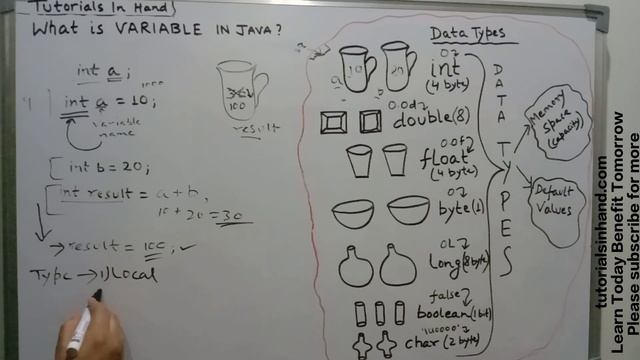 Tutorials In Hand
What is VARIABLE IN JAVA?
int a;
int a = 10;
variable
name
int b = 20;
int result = a + b,
10 + 20 = 30
→ result = 100; ✓
Type → 1) Local
100
result
Data Types
0
int
(4 byte)
0.0d
double(8)
0.0f
float
(4 byte)
0
byte(1)
0L
long(8byte)
false
boolean(1bit)
'\u0000'
char(2 byte)
DATA TYPES
Memory
Space
(capacity)
Default
Values
tutorialsinhand.com
Learn Today Benefit Tomorrow
Please subscribe for more